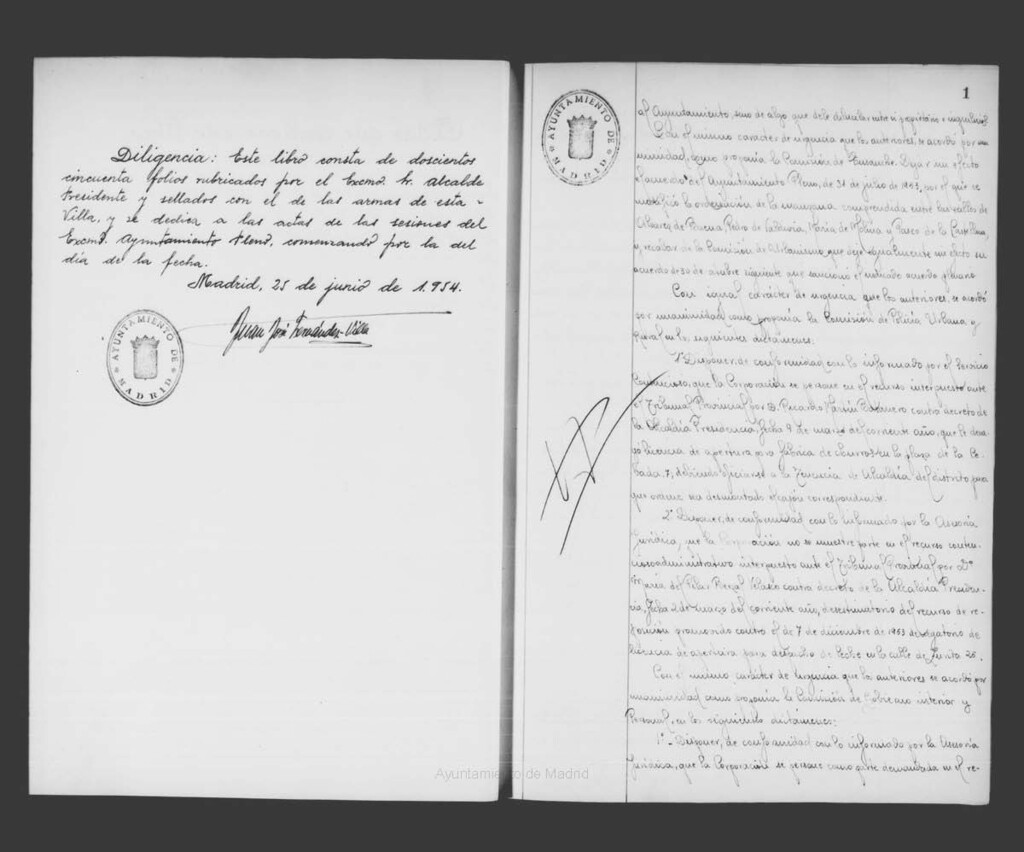 Diligencia: Este libro consta de doscientos
cincuenta folios rubricados por el Excmo. Sr. Alcalde
Presidente y sellados con el de las armas de esta
Villa, y se dedica a las actas de las sesiones del
Excmo. Ayuntamiento Pleno, comenzando por la del
día de la fecha.
Madrid, 25 de junio de 1.954.
Juan José Fernández-Villa
AYUNTAMIENTO DE MADRID
AYUNTAMIENTO DE MADRID
1
al Ayuntamiento, sino de algo que debe dilucidar entre propietario e inquilino
Con el mismo carácter de urgencia que los anteriores, se acordó por una-
nimidad, como proponía la Comisión de Ensanche, dejar sin efecto
el acuerdo del Ayuntamiento Pleno, de 31 de julio de 1953, por el que se
modificó la ordenación de la manzana comprendida entre las calles de
Álvarez de Baena, Pedro de Valdivia, María de Molina y Paseo de la Castellana,
y recabar de la Comisión de Urbanismo que deje igualmente sin efecto su
acuerdo de 30 de octubre siguiente que sancionó el citado acuerdo plenario.
Con igual carácter de urgencia que los anteriores, se acordó
por unanimidad, como proponía la Comisión de Policía Urbana y
Rural en los siguientes dictámenes:
1º Disponer, de conformidad con lo informado por el Servicio
Contencioso, que la Corporación se persone en el recurso interpuesto ante
el Tribunal Provincial por D. Ricardo contra decreto de
la Alcaldía Presidencia, fecha 9 de marzo del corriente año, que le dene-
gó licencia de apertura para fábrica de churros en la plaza de la Ce-
bada, 7, debiendo oficiarse a la Tenencia de Alcaldía del distrito para
que ordene sea desmontado el cajón correspondiente.
2º Disponer, de conformidad con lo informado por la Asesoría
Jurídica, que la Corporación no se muestre parte en el recurso conten-
ciosoadministrativo interpuesto ante el Tribunal Provincial por Dª
María del Pilar contra decreto de la Alcaldía Presiden-
cia, fecha 2 de marzo del corriente año, desestimatorio del recurso de re-
posición promovido contra el de 7 de diciembre de 1953 denegatorio de
licencia de apertura para despacho de leche en la calle de 25.
Con el mismo carácter de urgencia que los anteriores se acordó por
unanimidad como proponía la Comisión de Gobierno interior y
Personal, en los siguientes dictámenes:
1º - Disponer, de conformidad con lo informado por la Asesoría
Jurídica, que la Corporación se persone como parte demandada en el re-
Ayuntamiento de Madrid